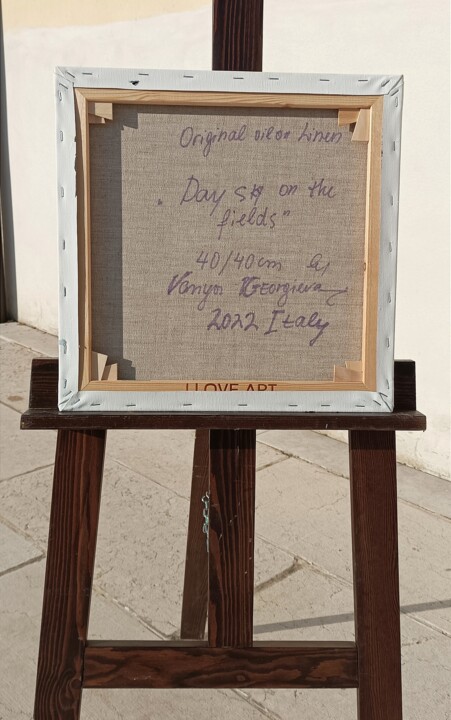 Original oil on Linen
„Day sky on the
fields"
40/40cm by
Vanya Georgieva
2022 Italy
I LOVE ART